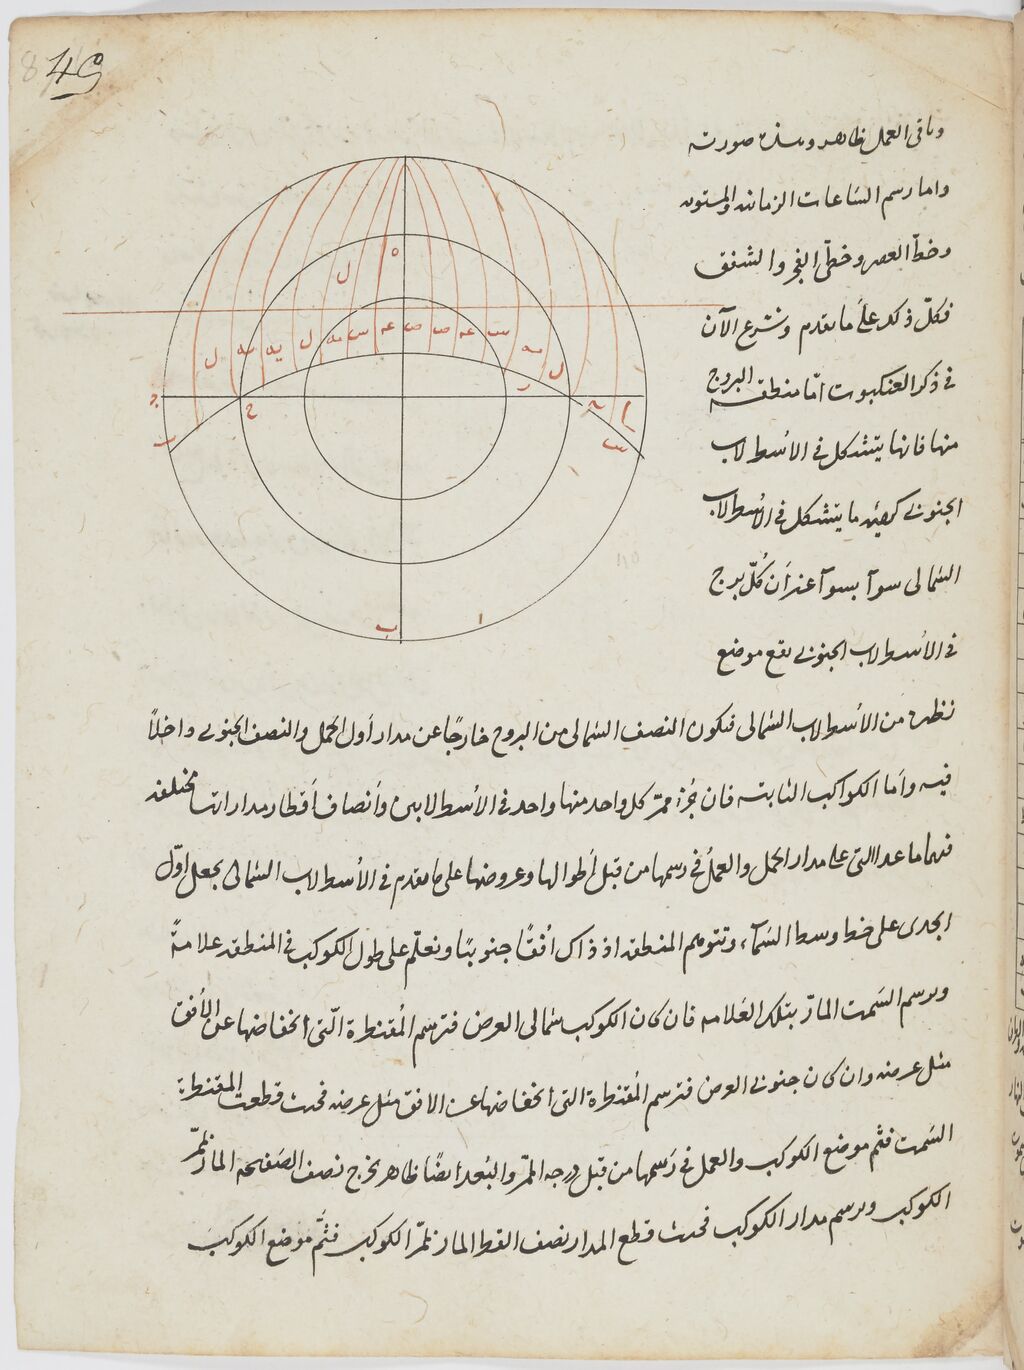 49
وباقى العمل ظاهر وهذه صورته
واما رسم الساعات الزمانيه والمستويه
وخطّ العصر وخطّى الفجر والشفق
فكلّ ذلك علىَ ما تقدم ونشرع الآن
فى ذكر العنكبوت امّا منطقه البروج
منها فانها يتشكل فى الأسطرلاب
الجنوبى كهيئه ما يتشكل فى الأسطرلاب
الشمالى سوآ بسوآ غير أن كُلّ برج
فى الأسطرلاب الجنوبى يقع موضع
نظيره من الأسطرلاب الشمالى فيكون النصف الشمالى من البروج خارجًا عن مدار أول الحمل والنصف الجنوبى داخلاً
فيه وأما الكواكب الثابته فان جُزء ممرّ كل واحد منها واحد فى الأسطرلابين وأنصاف أقطار مداراتها مختلفه
فيهما ما عدا التى على مدار الحمل والعمل فى رسمها من قبل أطوالها وعروضها على ما تقدم فى الأسطرلاب الشمالى بجعل أوّل
الجدى على خط وسط السّمآء وتتوهم المنطقه اذ ذاك أفقًا جنوبيًا ونعلّم على طول الكوكب فى المنطقه علامةً
ونرسم السَمت المارّ بتلك العَلامه فان كان الكوكب شمالى العرض فترسم المُقنطرة الّتى انخفاضها عن الأفق
مثل عرضه وان كان جنوبى العرض فترسم المُقنطرة التى انخفاضها عن الافق مثل عرضه فحيث قطعت المقنطرة
السَمت فثم موضع الكوكب والعمل فى رَسمها من قبل درجه الممرّ والبُعد أيضًا ظاهر نخرج نصف الصَفيحه المار بممرّ
الكوكب ونرسم مدار الكوكب فحيث قطع المدار نصف القطر المار بممرّ الكوكب فثَمَّ موضع الكوكب